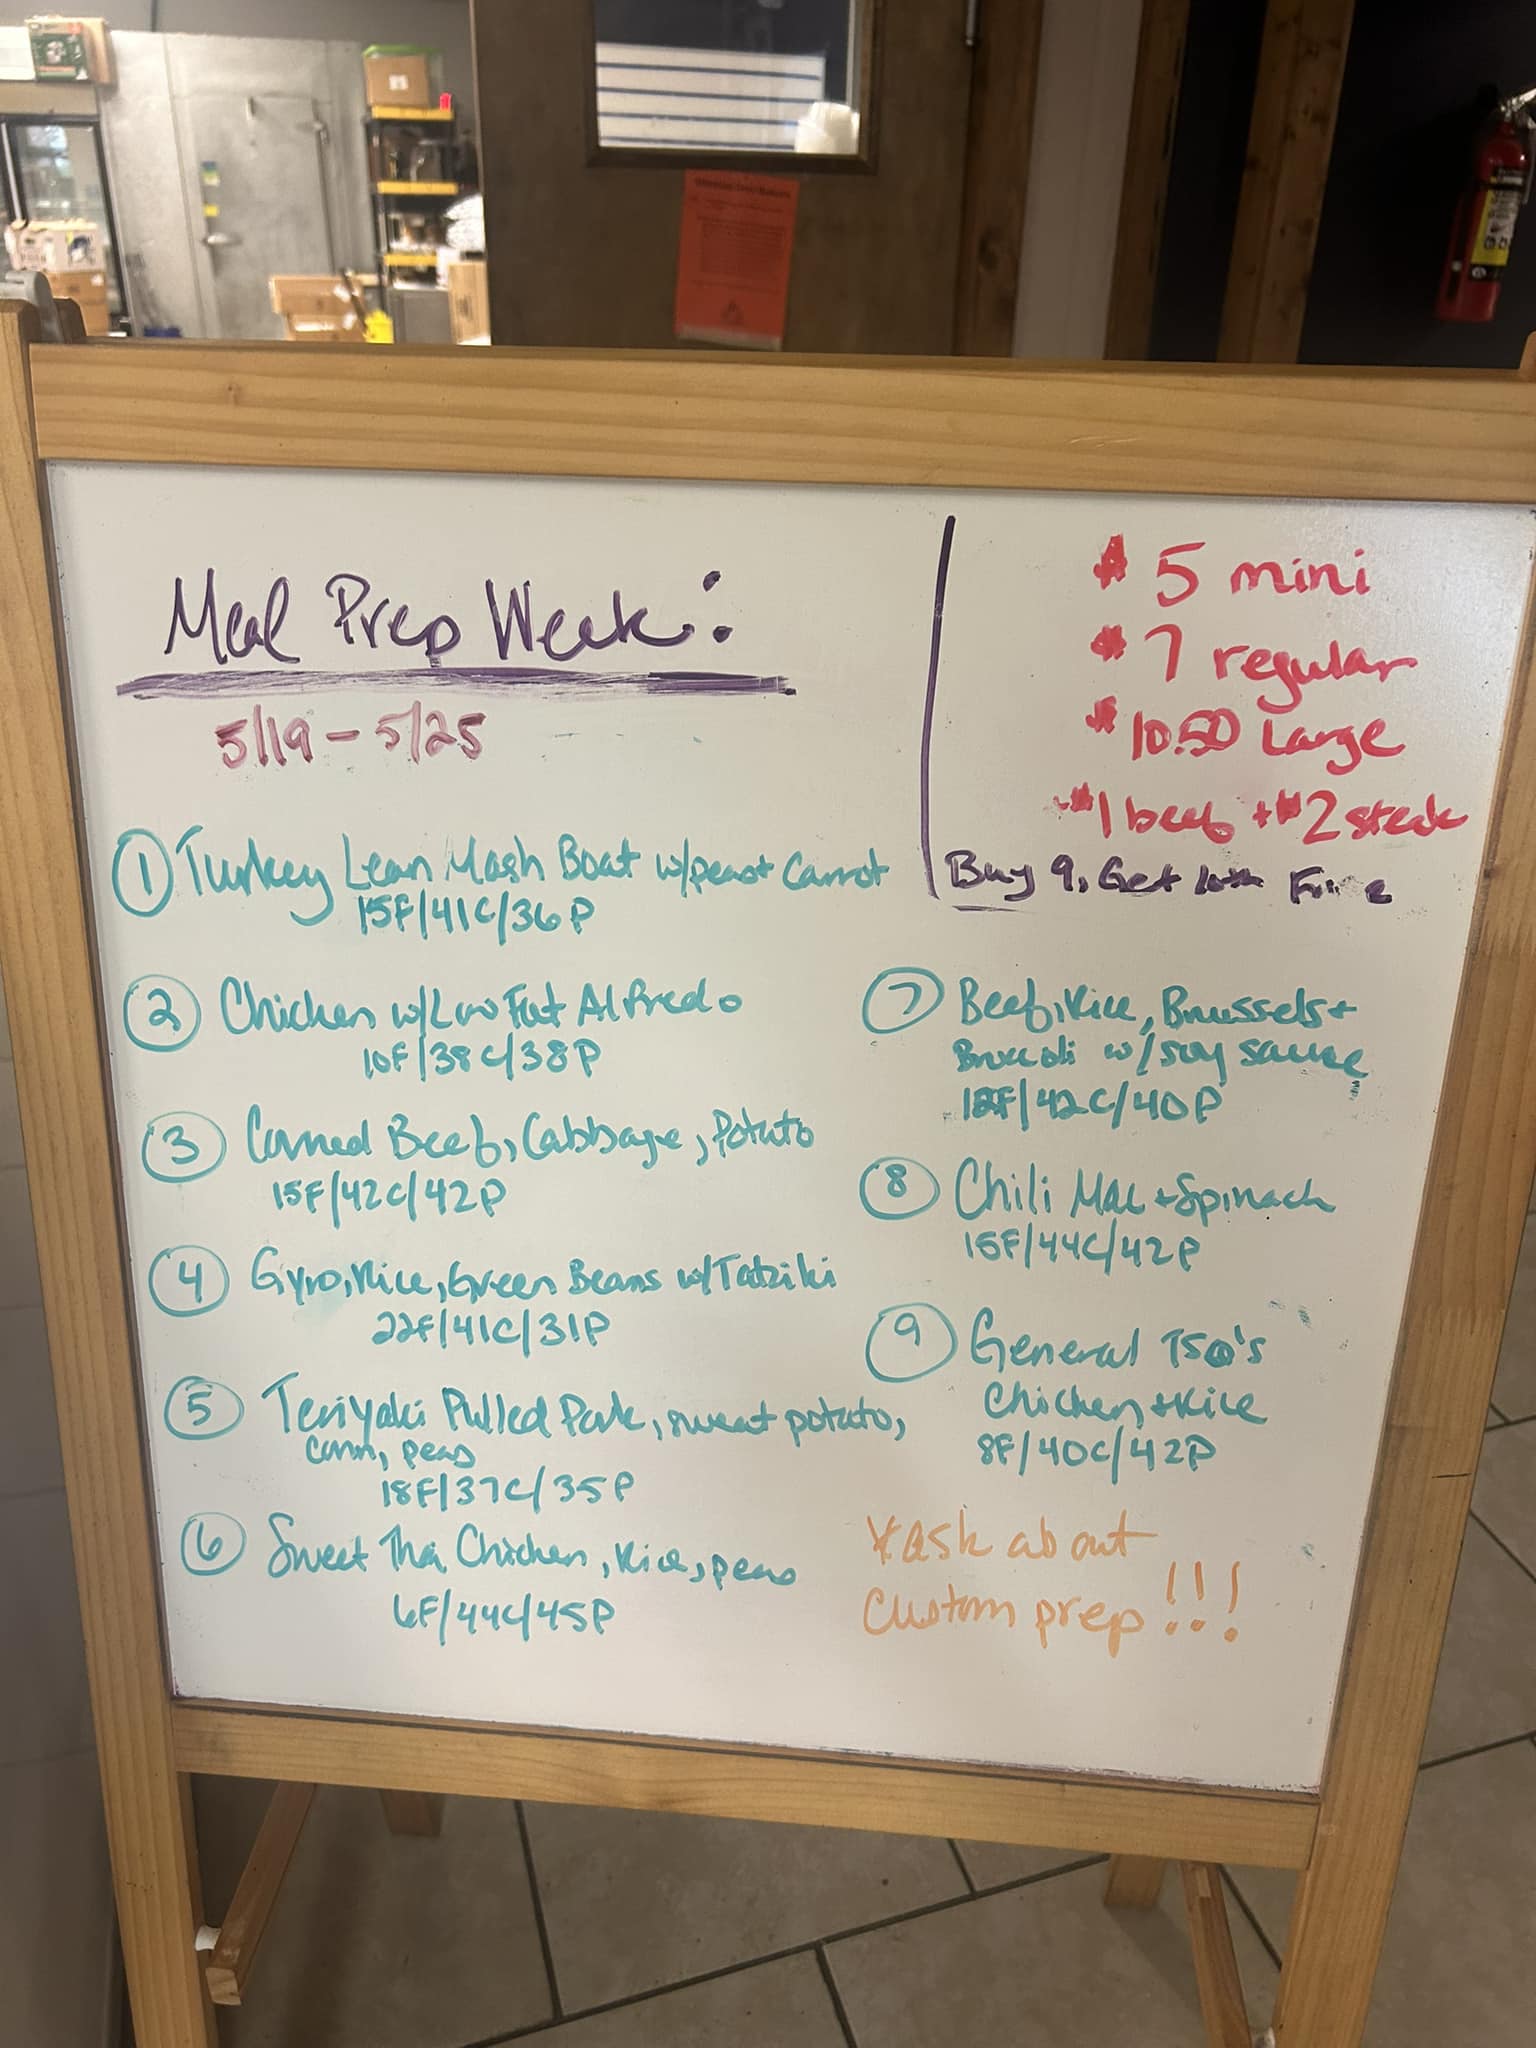 Meal Prep Week:
5/19 - 5/25
$5 mini
$7 regular
$10.50 Large
+$1 beef +$2 steak
Buy 9, Get 10th Free
① Turkey Lean Mash Boat w/peas + Carrot
15F/41C/36P
② Chicken w/Low Fat Alfredo
10F/38C/38P
③ Corned Beef, Cabbage, Potato
15F/42C/42P
④ Gyro, Rice, Green Beans w/Tatziki
22F/41C/31P
⑤ Teriyaki Pulled Pork, sweat potato,
corn, peas
18F/37C/35P
⑥ Sweet Thai Chicken, Rice, peas
6F/44C/45P
⑦ Beef, Rice, Brussels +
Broccoli w/ soy sauce
12F/42C/40P
⑧ Chili Mac + Spinach
15F/44C/42P
⑨ General Tso's
Chicken + Rice
8F/40C/42P
*ask about
Custom prep!!!